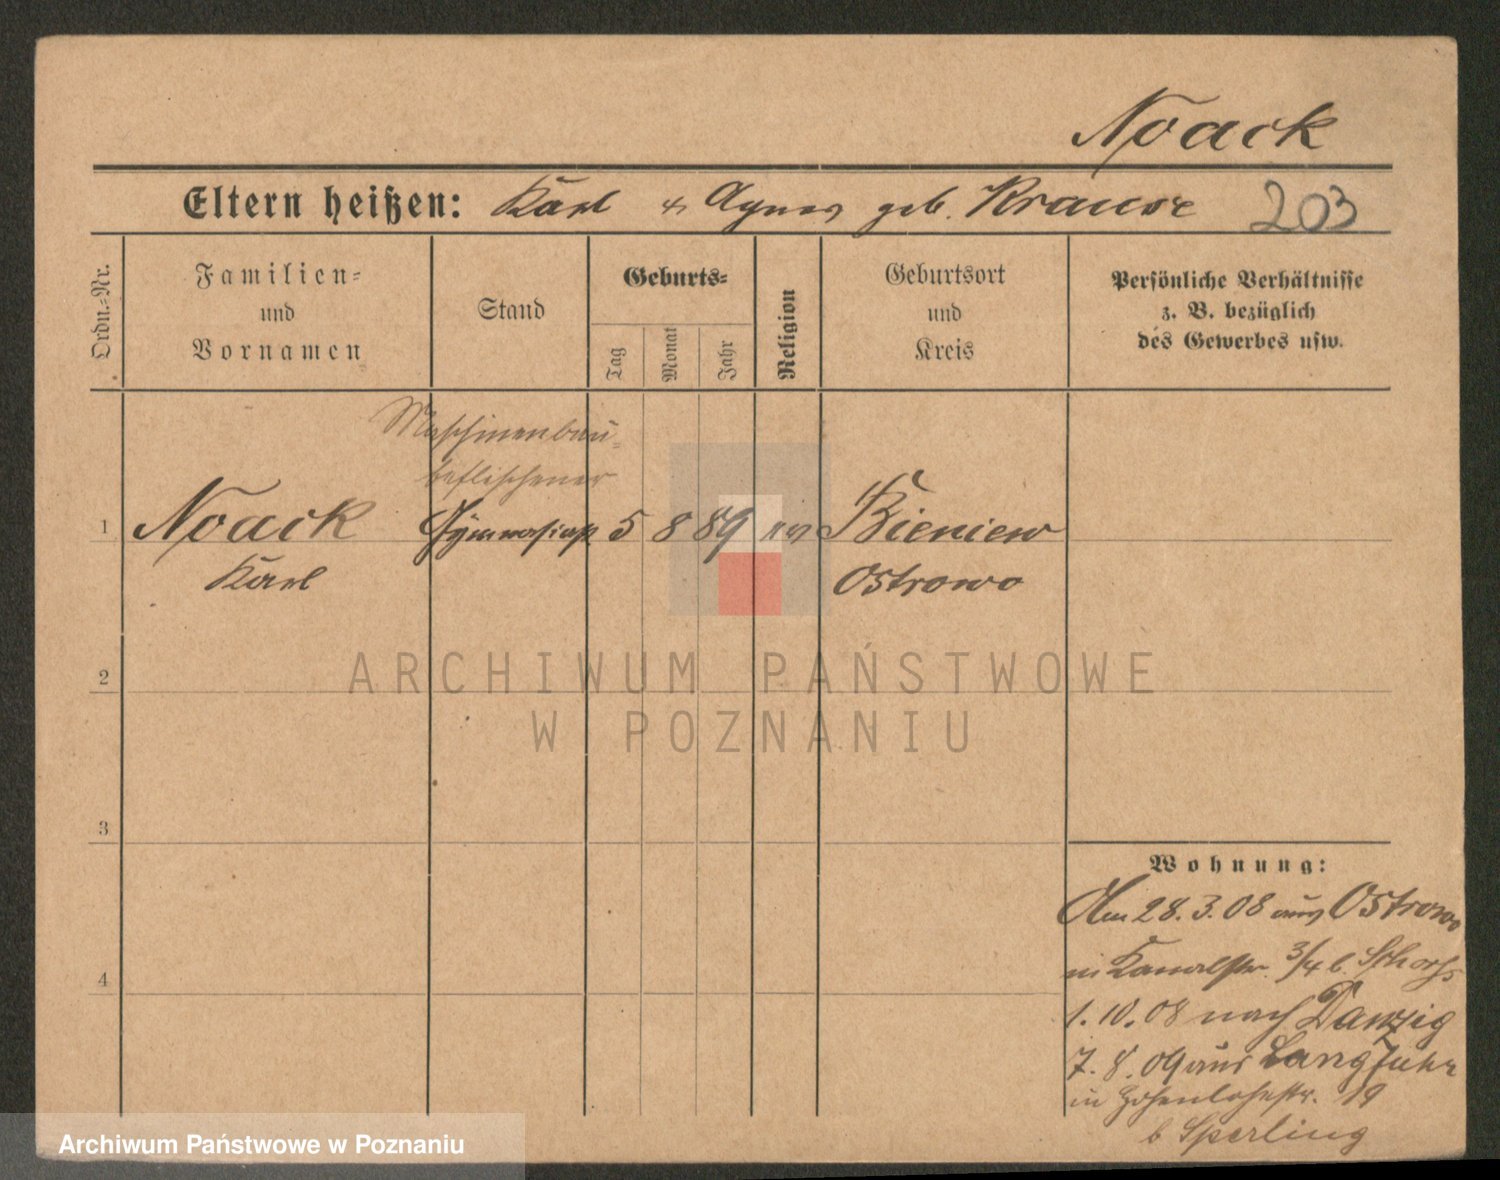 Noack
Eltern heißen: Karl & Agnes geb. Krause 203
Ordn.-Nr.
Familien-
und
Vornamen
Stand
Geburts-
Tag
Monat
Jahr
Religion
Geburtsort
und
Kreis
Persönliche Verhältnisse
z. B. bezüglich
des Gewerbes usw.
Maschinenbau-
beflissener
1 Noack Gymnasiast 5 8 89 ev Bieniew
Karl Ostrowo
2
3
4
Wohnung:
Am 28.3.08 aus Ostrowo
in Kanalstr. 3/4 b.
1.10.08 nach Danzig
7.8.09 aus Langfuhr
in Hohenlohestr. 19
b Sperling
ARCHIWUM PAŃSTWOWE
W POZNANIU
Archiwum Państwowe w Poznaniu